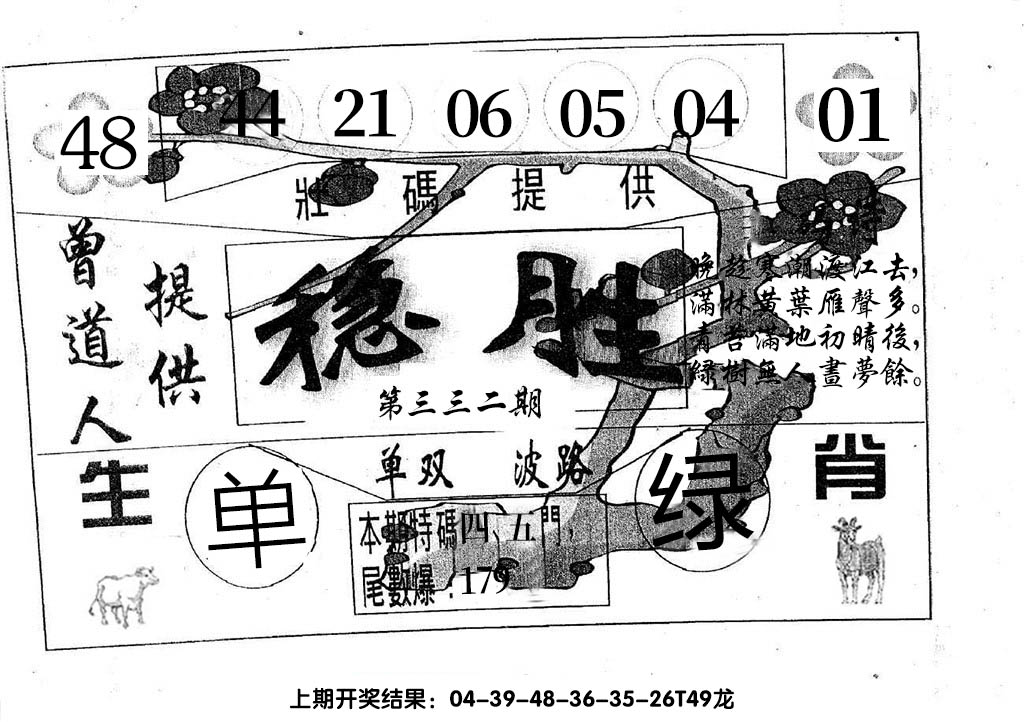 48 44 21 06 05 04 01
壯碼提供
特
曾道人
提供
稳胜
第三三二期
晚趁寒潮渡江去，
滿林黄葉雁聲多。
青苔滿地初晴後，
綠樹無人晝夢餘。
生肖
单双 波路
单 绿
本期特碼四、五門，
尾數爆：179
上期开奖结果：04-39-48-36-35-26T49龙